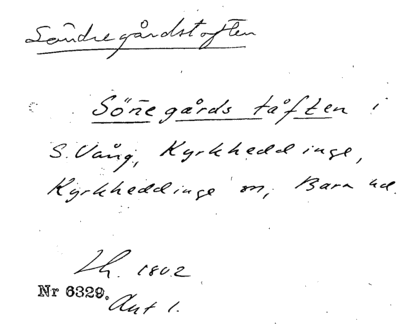 Söndregårdstoften
Söñegårds tåften i
S. Vång, Kyrkheddinge,
Kyrkheddinge sn, Bara hd.
Lh. 1802
Nr 6329. Akt 1.